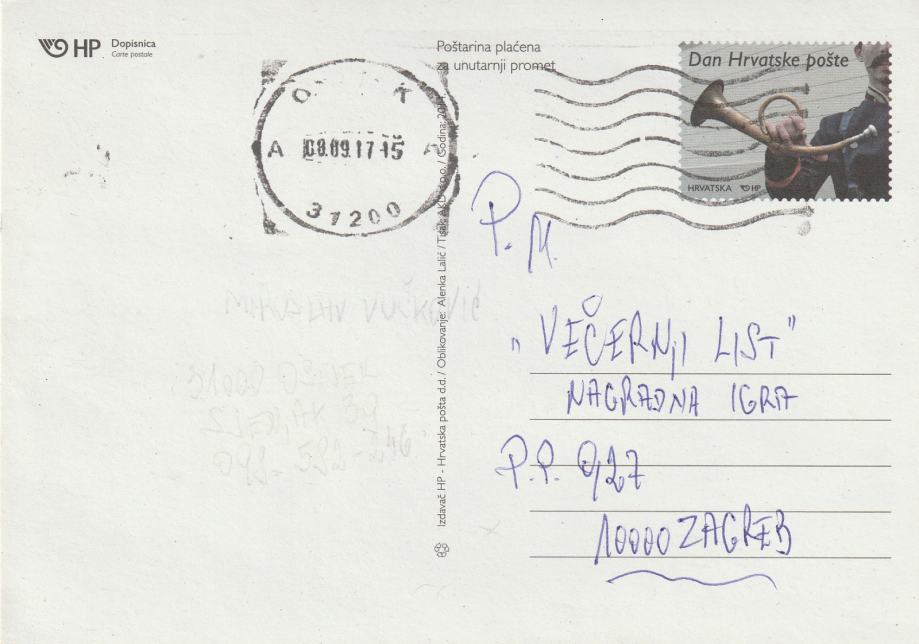 HP Dopisnica
Carte postale
Poštarina plaćena
za unutarnji promet
Dan Hrvatske pošte
HRVATSKA HP
08.09.17-15
31200
Izdavač HP - Hrvatska pošta d.d. / Oblikovanje: Alenka Lalić / Tisak: AKD d.o.o. / Godina:
P. M.
"VEČERNJI LIST"
NAGRADNA IGRA
P.P.
10000 ZAGREB
VUČKOVIĆ
31000